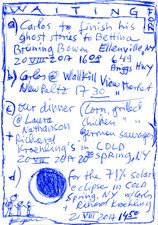 WAITING FOR
a) Carlos to finish his
ghost stories to Bettina
Bruning Bowen Ellenville, NY
20 VIII 2017 1608 649
Briggs Hwy
b) Carlos @ Wallkill View Market
New Paltz 17 30
c) our dinner (Corn, grilled
@ Laura chicken
Nathanson German sausages
+ Richard
Kroehling's in COLD
20 VIII 2017 20 SPRING, NY
d) for the 71% solar
eclipse in COLD
SPRING, NY w/Carlos
+ Richard Kroehling
21 VIII 2017 1450